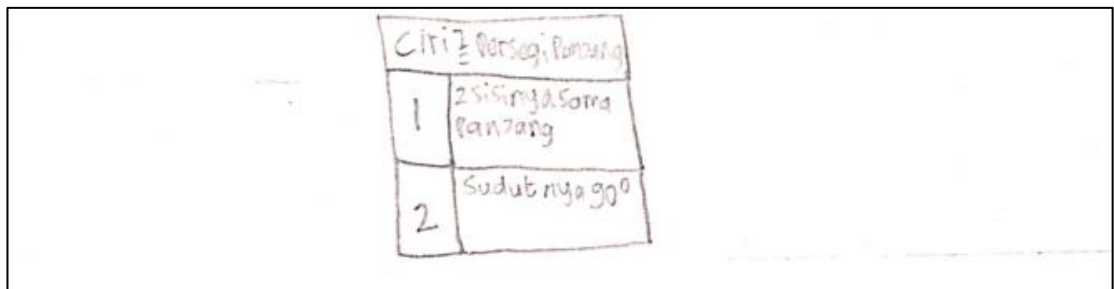 Ciri2 Persegi Panjang
1
2 sisinya sama
Panjang
2
Sudutnya 90°